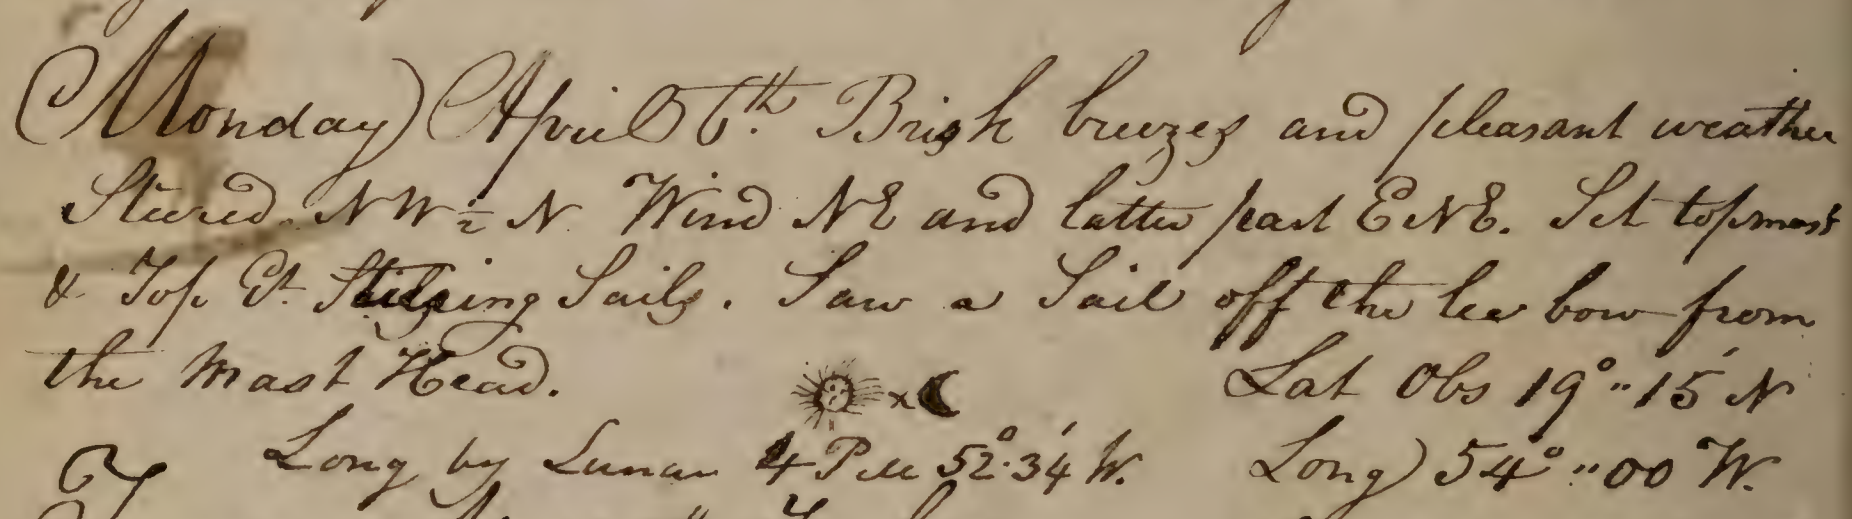 Monday) April 6th. Brisk breezes and pleasant weather
Steered NW ½ N. Wind NE and latter part ENE. Set topmast
& Top Gt. Sails. Saw a Sail off the lee bow from
the Mast Head. Lat Obs 19°..15' N
Long by Lunar 4 PM 52°.34' W. Long) 54°..00 W.